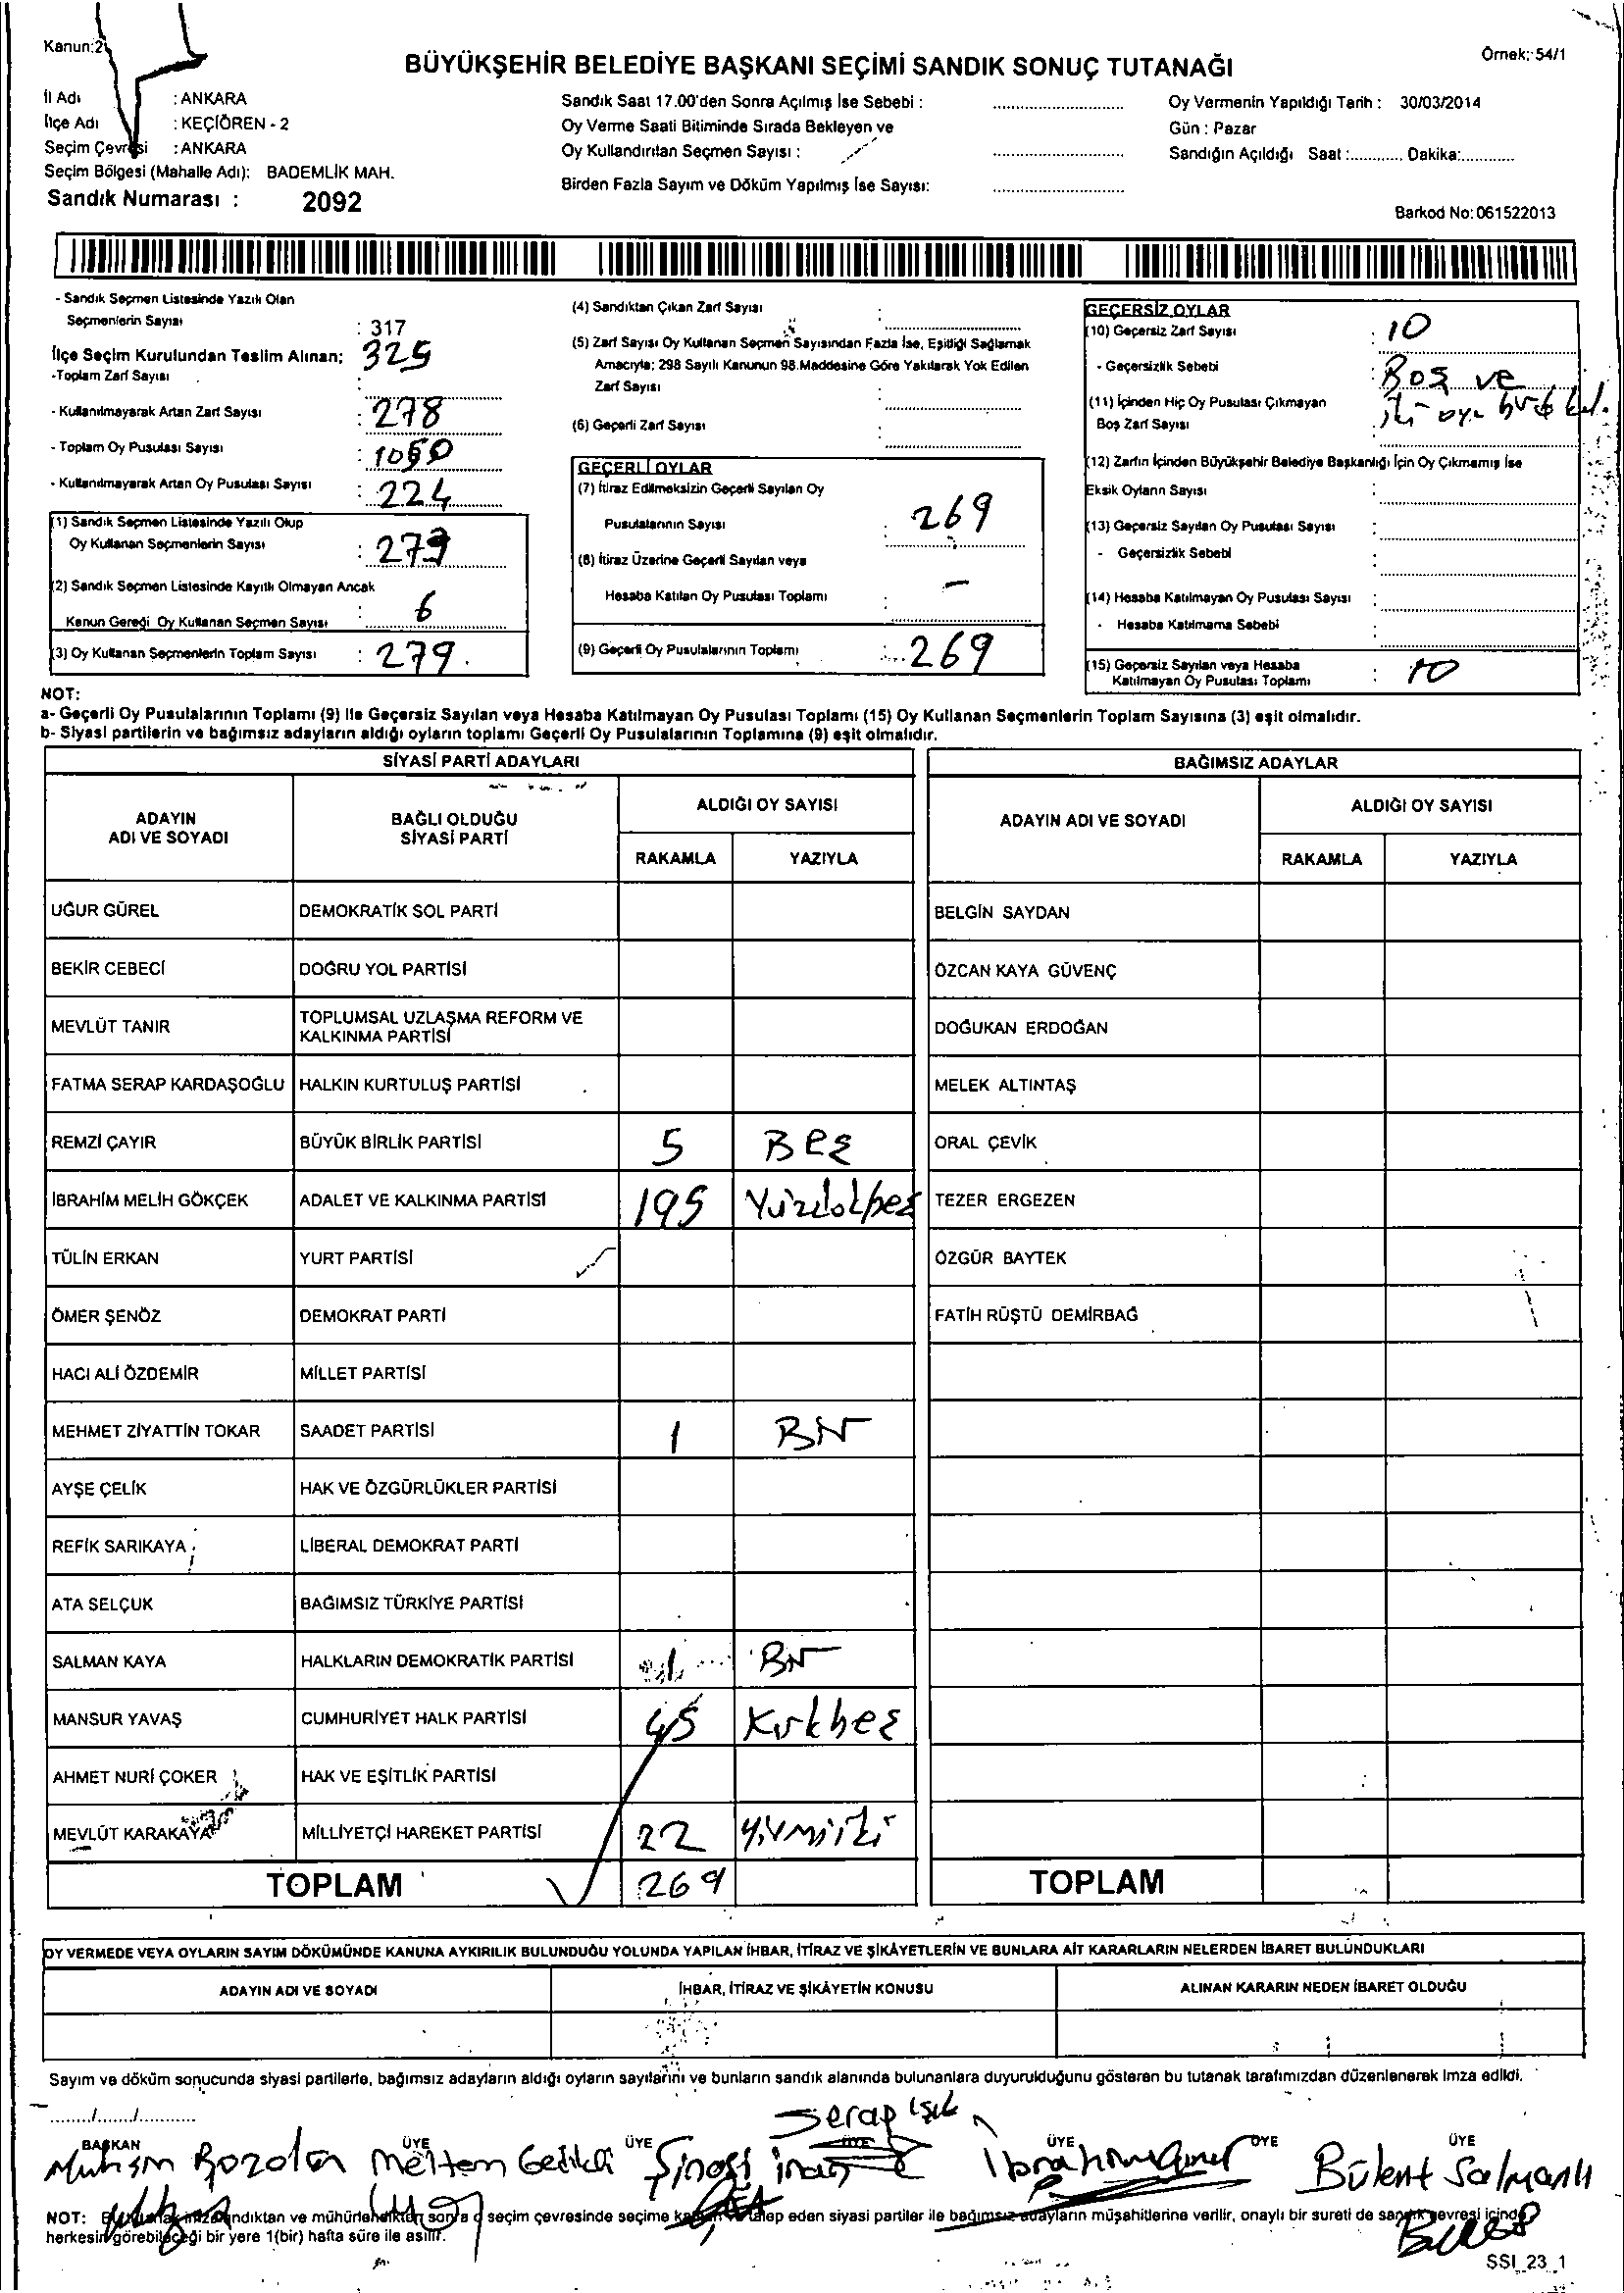 Kanun:2
BÜYÜKŞEHİR BELEDİYE BAŞKANI SEÇİMİ SANDIK SONUÇ TUTANAĞI
Örnek: 54/1
İl Adı : ANKARA
İlçe Adı : KEÇİÖREN - 2
Seçim Çevresi : ANKARA
Seçim Bölgesi (Mahalle Adı): BADEMLİK MAH.
Sandık Numarası : 2092
Sandık Saat 17.00'den Sonra Açılmış İse Sebebi :
Oy Verme Saati Bitiminde Sırada Bekleyen ve
Oy Kullandırılan Seçmen Sayısı :
Birden Fazla Sayım ve Döküm Yapılmış İse Sayısı:
Oy Vermenin Yapıldığı Tarih : 30/03/2014
Gün : Pazar
Sandığın Açıldığı Saat :............ Dakika:............
Barkod No: 061522013
- Sandık Seçmen Listesinde Yazılı Olan
Seçmenlerin Sayısı : 317
İlçe Seçim Kurulundan Teslim Alınan; 325
-Toplam Zarf Sayısı :
- Kullanılmayarak Artan Zarf Sayısı : 278
- Toplam Oy Pusulası Sayısı :
- Kullanılmayarak Artan Oy Pusulası Sayısı : 224
(1) Sandık Seçmen Listesinde Yazılı Olup
Oy Kullanan Seçmenlerin Sayısı :
(2) Sandık Seçmen Listesinde Kayıtlı Olmayan Ancak
Kanun Gereği Oy Kullanan Seçmen Sayısı : 6
(3) Oy Kullanan Seçmenlerin Toplam Sayısı : 279
(4) Sandıktan Çıkan Zarf Sayısı :
(5) Zarf Sayısı Oy Kullanan Seçmen Sayısından Fazla İse, Eşitliği Sağlamak
Amacıyla; 298 Sayılı Kanunun 98.Maddesine Göre Yakılarak Yok Edilen
Zarf Sayısı :
(6) Geçerli Zarf Sayısı :
GEÇERLİ OYLAR
(7) İtiraz Edilmeksizin Geçerli Sayılan Oy
Pusulalarının Sayısı : 269
(8) İtiraz Üzerine Geçerli Sayılan veya
Hesaba Katılan Oy Pusulası Toplamı : -
(9) Geçerli Oy Pusulalarının Toplamı : 269
GEÇERSİZ OYLAR
(10) Geçersiz Zarf Sayısı : 10
- Geçersizlik Sebebi : Boş ve
(11) İçinden Hiç Oy Pusulası Çıkmayan iki oya
Boş Zarf Sayısı :
(12) Zarfın İçinden Büyükşehir Belediye Başkanlığı İçin Oy Çıkmamış İse
Eksik Oyların Sayısı :
(13) Geçersiz Sayılan Oy Pusulası Sayısı :
- Geçersizlik Sebebi
(14) Hesaba Katılmayan Oy Pusulası Sayısı :
- Hesaba Katılmama Sebebi :
(15) Geçersiz Sayılan veya Hesaba
Katılmayan Oy Pusulası Toplamı : 10
NOT:
a- Geçerli Oy Pusulalarının Toplamı (9) ile Geçersiz Sayılan veya Hesaba Katılmayan Oy Pusulası Toplamı (15) Oy Kullanan Seçmenlerin Toplam Sayısına (3) eşit olmalıdır.
b- Siyasi partilerin ve bağımsız adayların aldığı oyların toplamı Geçerli Oy Pusulalarının Toplamına (9) eşit olmalıdır.
SİYASİ PARTİ ADAYLARI
BAĞIMSIZ ADAYLAR
ADAYIN
ADI VE SOYADI
BAĞLI OLDUĞU
SİYASİ PARTİ
ALDIĞI OY SAYISI
RAKAMLA YAZIYLA
ADAYIN ADI VE SOYADI
ALDIĞI OY SAYISI
RAKAMLA YAZIYLA
UĞUR GÜREL DEMOKRATİK SOL PARTİ BELGİN SAYDAN
BEKİR CEBECİ DOĞRU YOL PARTİSİ ÖZCAN KAYA GÜVENÇ
MEVLÜT TANIR TOPLUMSAL UZLAŞMA REFORM VE
KALKINMA PARTİSİ DOĞUKAN ERDOĞAN
FATMA SERAP KARDAŞOĞLU HALKIN KURTULUŞ PARTİSİ MELEK ALTINTAŞ
REMZİ ÇAYIR BÜYÜK BİRLİK PARTİSİ 5 Beş ORAL ÇEVİK
İBRAHİM MELİH GÖKÇEK ADALET VE KALKINMA PARTİSİ 195 TEZER ERGEZEN
TÜLİN ERKAN YURT PARTİSİ ÖZGÜR BAYTEK
ÖMER ŞENÖZ DEMOKRAT PARTİ FATİH RÜŞTÜ DEMİRBAĞ
HACI ALİ ÖZDEMİR MİLLET PARTİSİ
MEHMET ZİYATTİN TOKAR SAADET PARTİSİ 1 Bir
AYŞE ÇELİK HAK VE ÖZGÜRLÜKLER PARTİSİ
REFİK SARIKAYA LİBERAL DEMOKRAT PARTİ
ATA SELÇUK BAĞIMSIZ TÜRKİYE PARTİSİ
SALMAN KAYA HALKLARIN DEMOKRATİK PARTİSİ 1 Bir
MANSUR YAVAŞ CUMHURİYET HALK PARTİSİ 45 Kırkbeş
AHMET NURİ ÇOKER HAK VE EŞİTLİK PARTİSİ
MEVLÜT KARAKAYA MİLLİYETÇİ HAREKET PARTİSİ 22 yirmiiki
TOPLAM 269 TOPLAM
OY VERMEDE VEYA OYLARIN SAYIM DÖKÜMÜNDE KANUNA AYKIRILIK BULUNDUĞU YOLUNDA YAPILAN İHBAR, İTİRAZ VE ŞİKÂYETLERİN VE BUNLARA AİT KARARLARIN NELERDEN İBARET BULUNDUKLARI
ADAYIN ADI VE SOYADI İHBAR, İTİRAZ VE ŞİKÂYETİN KONUSU ALINAN KARARIN NEDEN İBARET OLDUĞU
Sayım ve döküm sonucunda siyasi partilerle, bağımsız adayların aldığı oyların sayılarını ve bunların sandık alanında bulunanlara duyurulduğunu gösteren bu tutanak tarafımızdan düzenlenerek imza edildi.
......../......../............
Serap Işık
BAŞKAN ÜYE ÜYE ÜYE ÜYE ÜYE ÜYE
Muhsin Bozolan Meltem Gedikli Şinasi İnanç İbrahim Bülent Salmanlı
NOT: Bu tutanak imzalandıktan ve mühürlendikten sonra o seçim çevresinde seçime katılan ve talep eden siyasi partiler ile bağımsız adayların müşahitlerine verilir, onaylı bir sureti de sandık çevresi içinde
herkesin görebileceği bir yere 1(bir) hafta süre ile asılır.
SSI_23_1